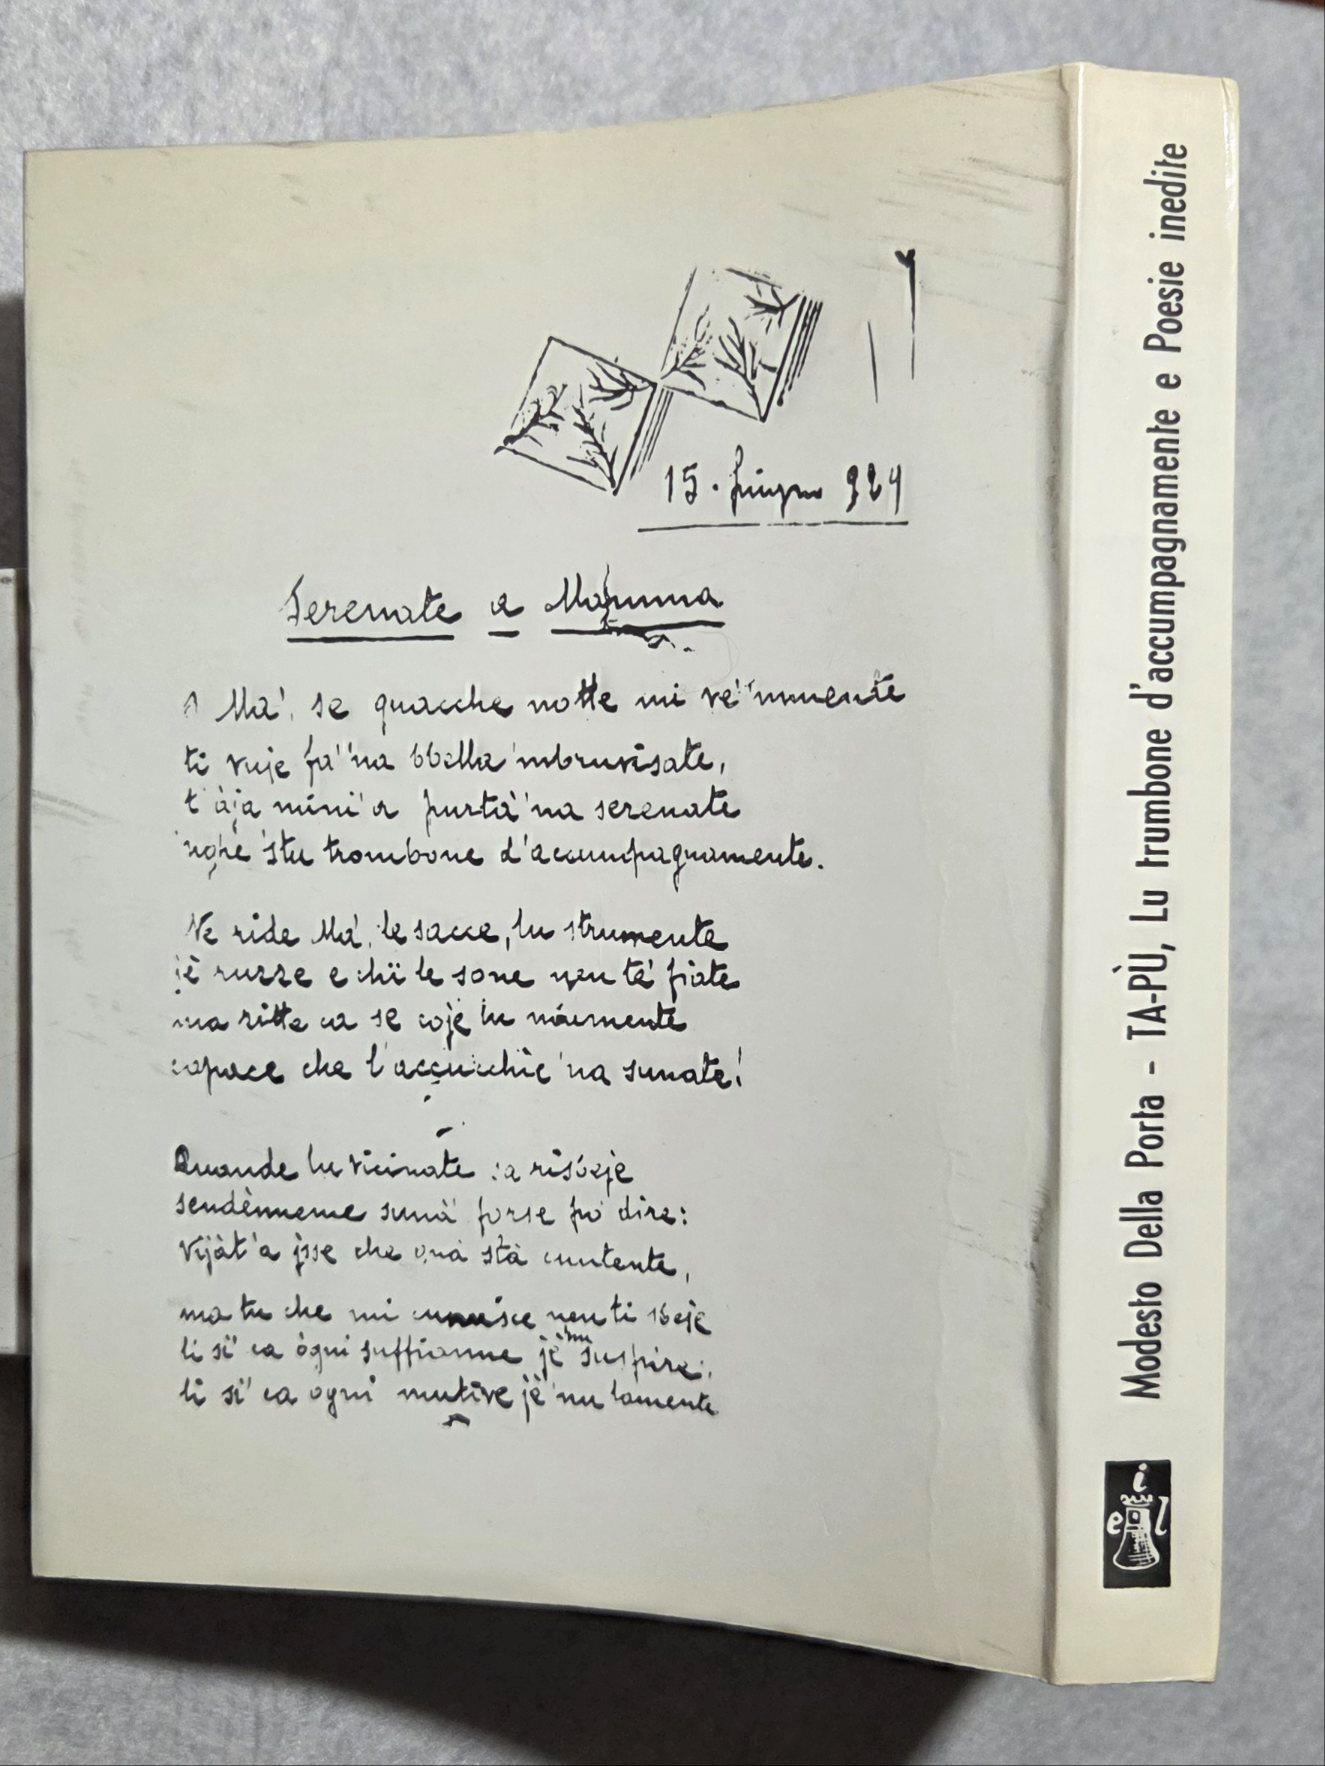 15. giugno 924
Serenate a Mamma
Ma', se quacche notte mi vé 'mmente
ti vuje fa' 'na bbella 'mbruvisate,
t'àja mini' a purtà 'na serenate
'nghe 'stu trombone d'accumpagnamente.
Ne ride Ma', le sacce, lu strumente
jè ruzze e chï le sone nen té' fiate
ma ritte ca se coje lu mumente
capace che l'accucchie 'na sunate!
Quande lu vicinate risbeje
sendènneme sunà' forse pò dire:
Vijàt'a jsse che quà stà cuntente,
ma tu che mi cunusce nen ti sbeje
li si' ca ògni suffianne jè 'nu suspire:
li si' ca ogni mutive jè 'nu lamente
Modesto Della Porta - TA-PÙ, Lu trumbone d'accumpagnamente e Poesie inedite
e i l